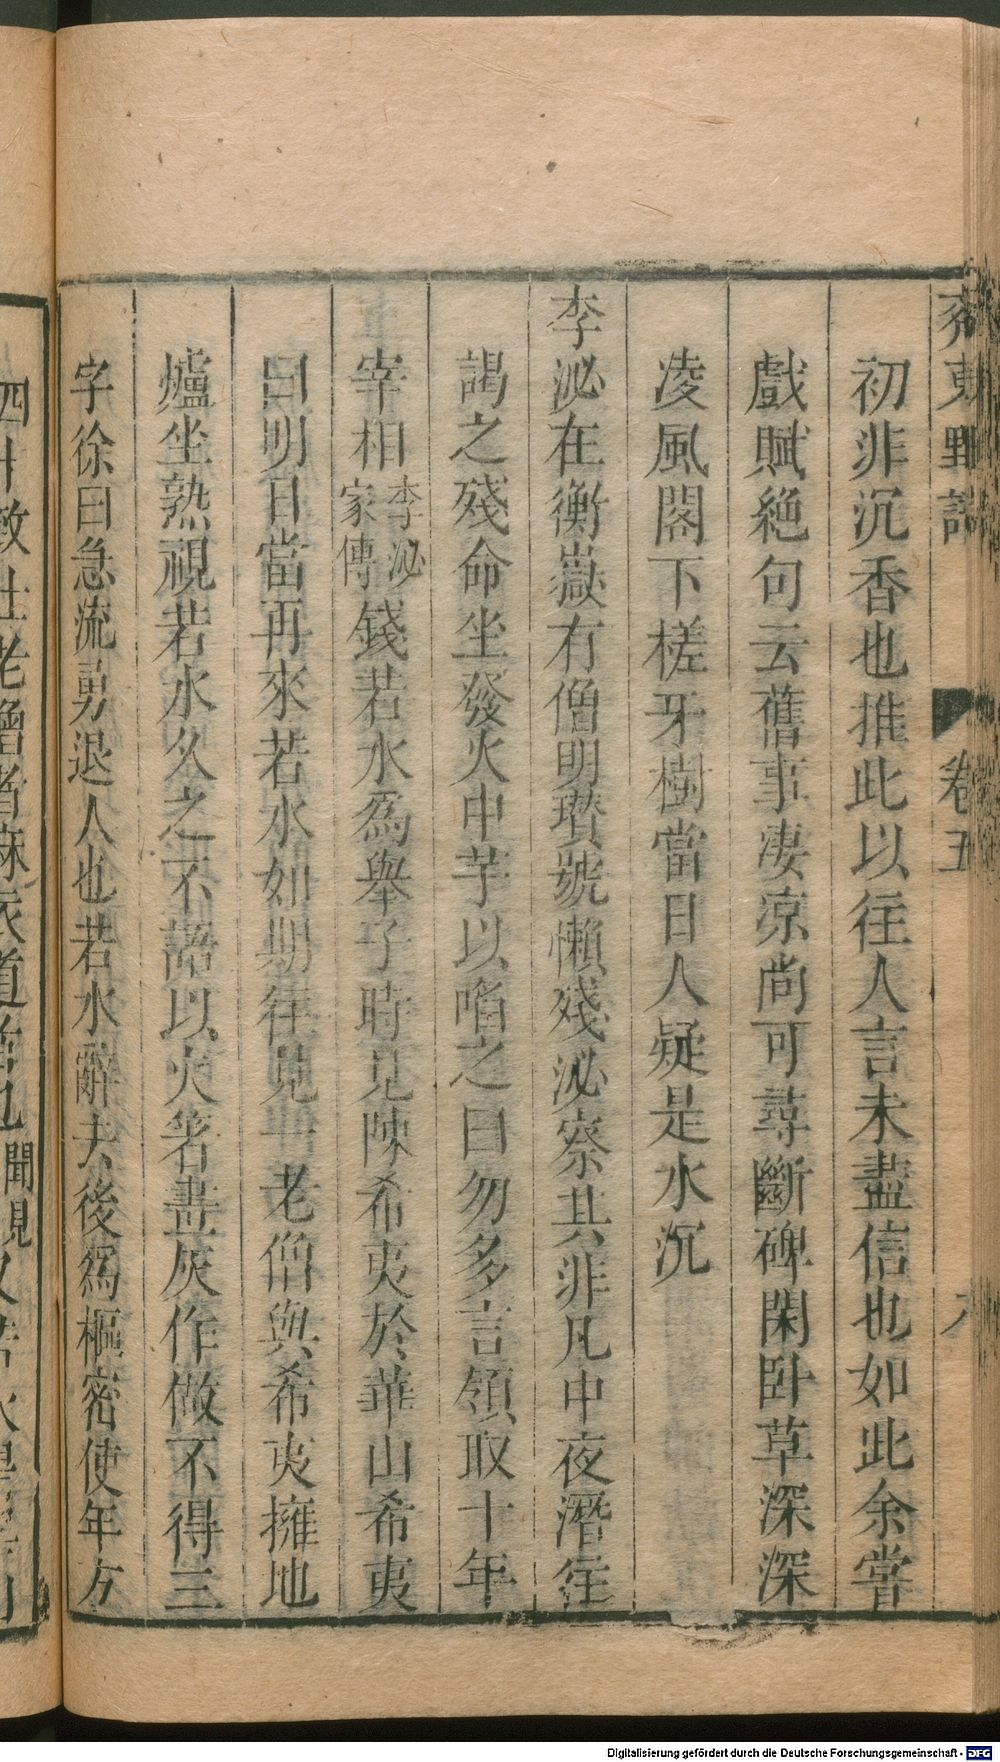 齊東野語
卷五
初非沉香也推此以往人言未盡信也如此余嘗
戲賦絕句云舊事凄凉尚可尋斷碑閑卧草深深
凌風閣下槎牙樹當日人疑是水沉
李泌在衡嶽有僧明瓚號懶殘泌察其非凡中夜潛往
謁之殘命坐發火中芋以啗之曰勿多言領取十年
宰相李泌家傳錢若水爲舉子時見陳希夷於華山希夷
曰明日當再來若水如期往見一老僧與希夷擁地
爐坐熟視若水久之不語以火筯畫灰作做不得三
字徐曰急流勇退人也若水辭去後爲樞密使年方
Digitalisierung gefördert durch die Deutsche Forschungsgemeinschaft - DFG